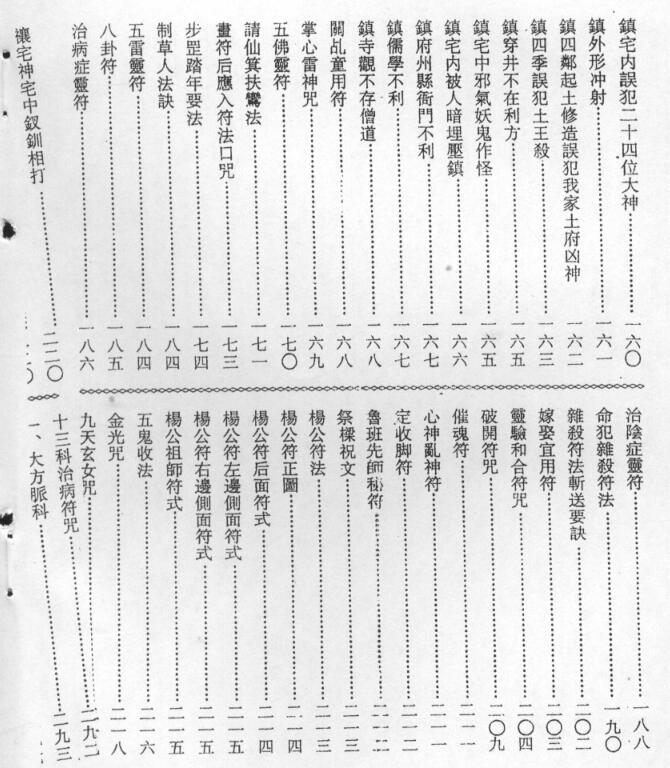 鎮宅内誤犯二十四位大神 一六〇
鎮外形冲射 一六一
鎮四鄰起土修造誤犯我家土府凶神 一六二
鎮四季誤犯土王殺 一六三
鎮穿井不在利方 一六五
鎮宅中邪氣妖鬼作怪 一六五
鎮宅内被人暗埋壓鎮 一六六
鎮府州縣衙門不利 一六七
鎮儒學不利 一六七
鎮寺觀不存僧道 一六八
關乩童用符 一六八
掌心雷神咒 一六九
五佛靈符 一七〇
請仙箕扶鸞法 一七一
畫符后應入符法口咒 一七三
步罡踏年要法 一七四
制草人法訣 一八四
五雷靈符 一八四
八卦符 一八五
治病症靈符 一八六
治陰症靈符 一八八
命犯雜殺符法 一九〇
雜殺符法斬送要訣 二〇二
嫁娶宜用符 二〇三
靈驗和合符咒 二〇四
破開符咒 二〇九
催魂符 二一一
心神亂神符 二一一
定收脚符 二一二
魯班先師秘符 二一二
祭樑祝文 二一三
楊公符法 二一三
楊公符正圖 二一四
楊公符后面符式 二一四
楊公符左邊側面符式 二一五
楊公符右邊側面符式 二一五
楊公祖師符式 二一五
五鬼收法 二一六
金光咒 二一八
九天玄女咒 二九二
十三科治病符咒 二九三
一、大方脈科
禳宅神宅中釵釧相打 二二〇